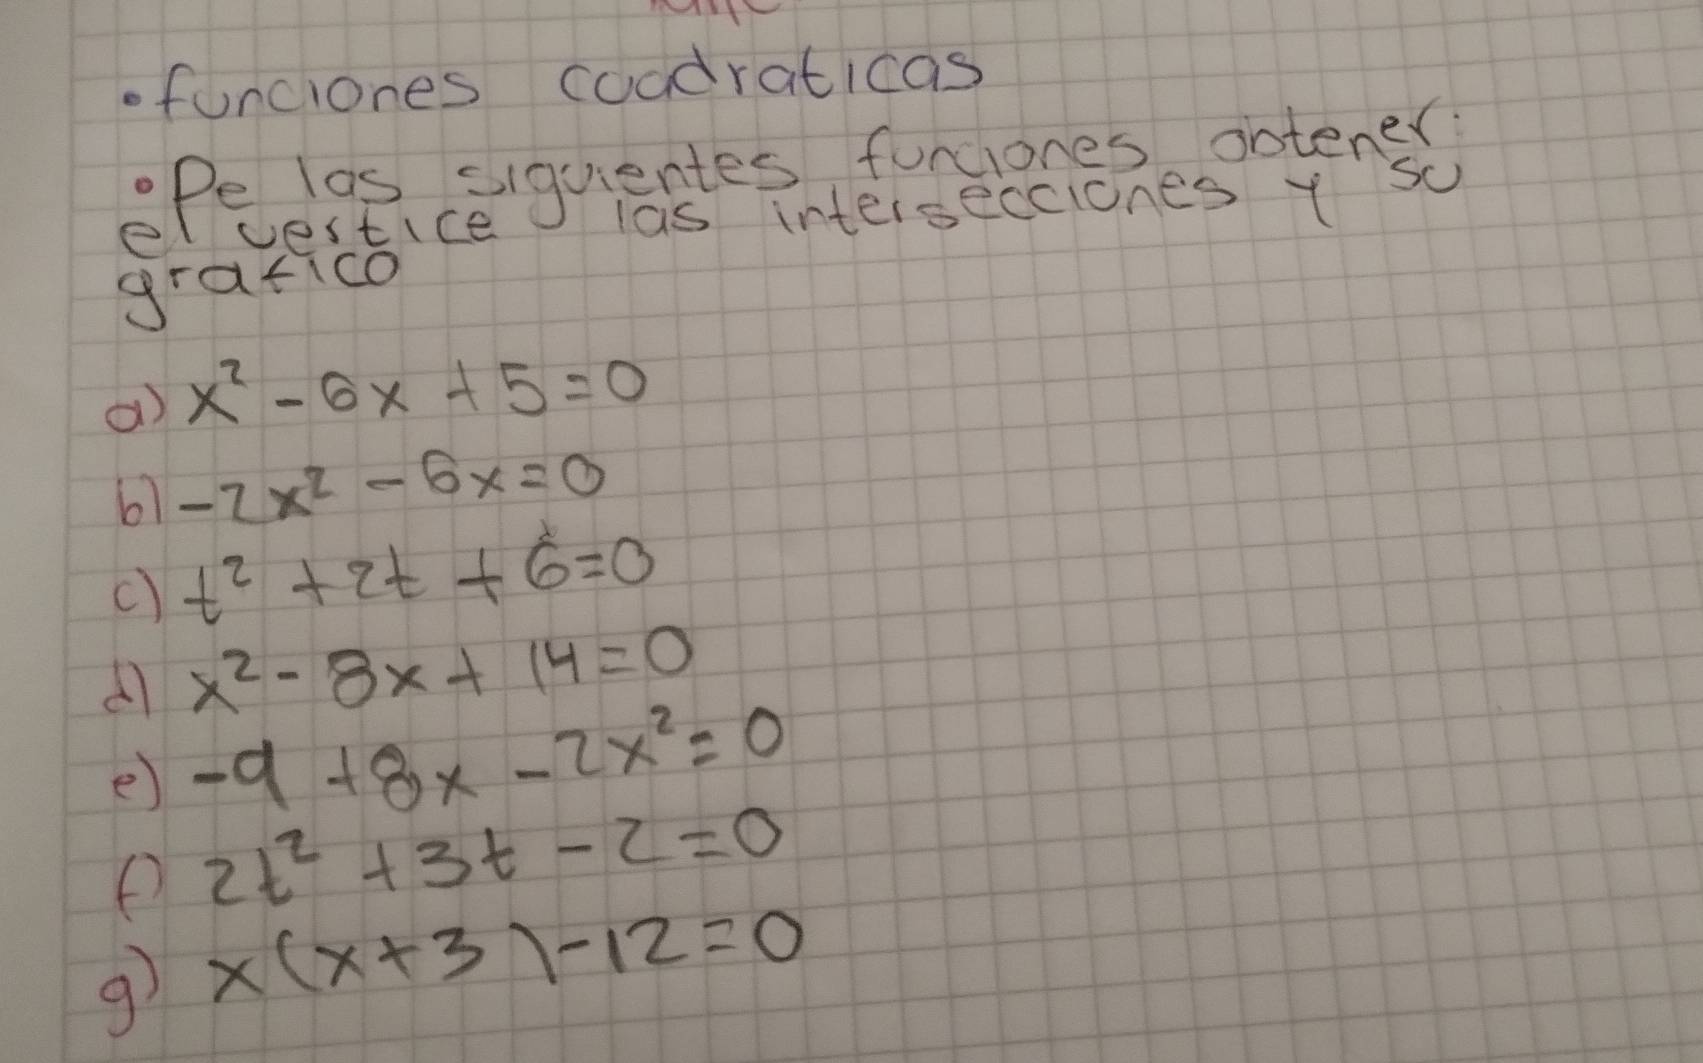 • funciones cuadraticas
• De las siguientes funciones obtener:
el vertice las intersecciones y su
grafico
a) x² - 6x + 5 = 0
b) -2x² - 6x = 0
c) t² + 2t + 6 = 0
d) x² - 8x + 14 = 0
e) -9 + 8x - 2x² = 0
f) 2t² + 3t - 2 = 0
g) x(x+3) - 12 = 0